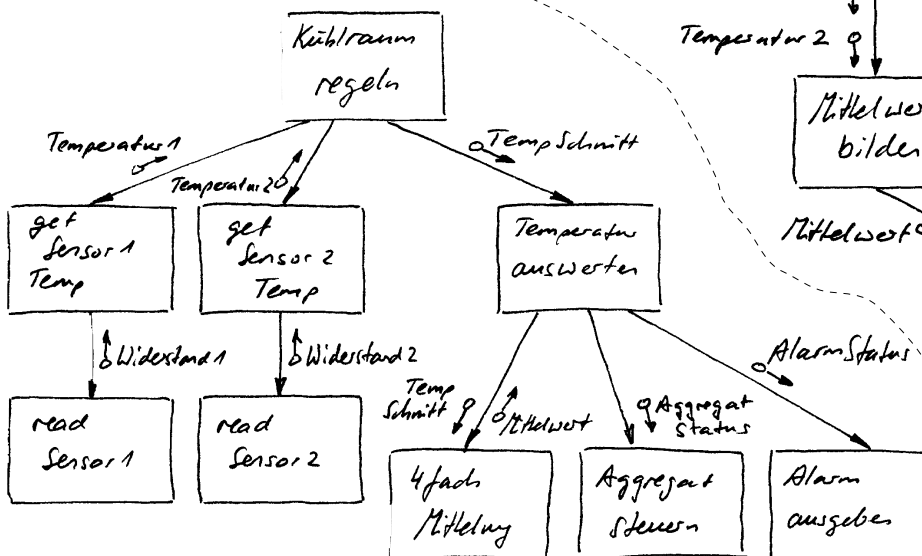 Kühlraum
regeln
Temperatur 2
Mittelwer
bilden
Mittelwert
Temperatur 1
Temperatur 2
TempSchnitt
get
Sensor 1
Temp
get
Sensor 2
Temp
Temperatur
auswerten
Widerstand 1
Widerstand 2
AlarmStatus
Temp
Schnitt
Mittelwert
Aggregat
Status
read
Sensor 1
read
Sensor 2
4fach
Mittelung
Aggregat
steuern
Alarm
ausgeben